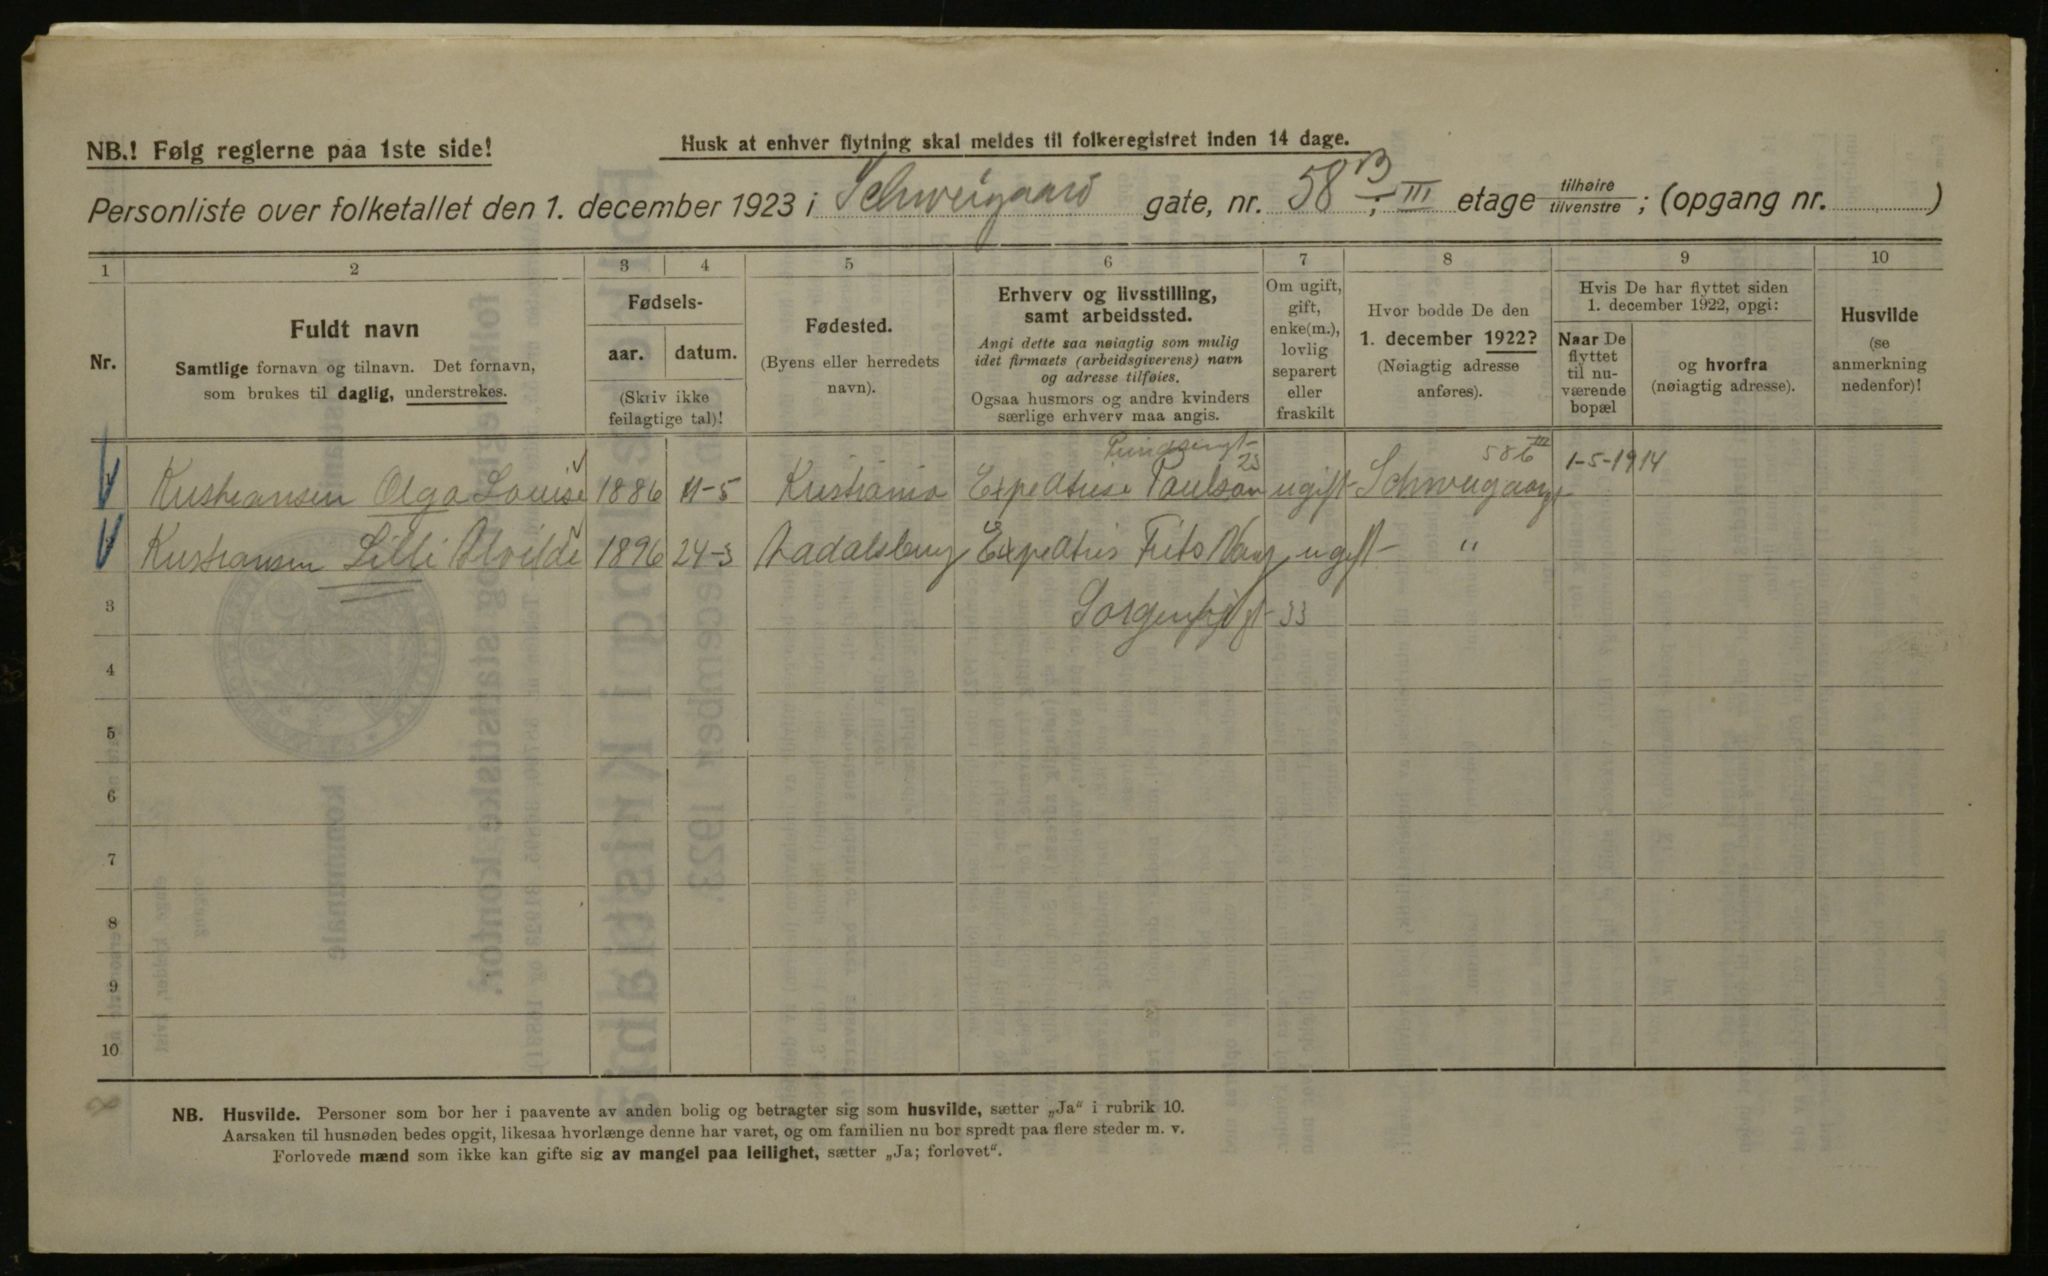 NB.! Følg reglerne paa 1ste side!
Husk at enhver flytning skal meldes til folkeregistret inden 14 dage.
Personliste over folketallet den 1. december 1923 i Schweigaard gate, nr. 58 B; III etage tilhøire tilvenstre; (opgang nr. )
1 2 3 4 5 6 7 8 9 10
Nr.
Fuldt navn
Samtlige fornavn og tilnavn. Det fornavn,
som brukes til daglig, understrekes.
Fødsels-
aar. datum.
(Skriv ikke
feilagtige tal)!
Fødested.
(Byens eller herredets
navn).
Erhverv og livsstilling,
samt arbeidssted.
Angi dette saa nøiagtig som mulig
idet firmaets (arbeidsgiverens) navn
og adresse tilføies.
Ogsaa husmors og andre kvinders
særlige erhverv maa angis.
Om ugift,
gift,
enke(m.),
lovlig
separert
eller
fraskilt
Hvor bodde De den
1. december 1922?
(Nøiagtig adresse
anføres).
Hvis De har flyttet siden
1. december 1922, opgi:
Naar De
flyttet
til nu-
værende
bopæl
og hvorfra
(nøiagtig adresse).
Husvilde
(se
anmerkning
nedenfor)!
23 58 b III
Kristiansen Olga Louise 1886 11-5 Kristiania Expeditrise Paulson ugift Schweigaardgt 1-5-1914
Kristiansen Lilli Alvilde 1896 24-3 Aadalsbrug Expeditris Frits Vang ugift "
3 Sorgenfrigt 33
4
5
6
7
8
9
10
NB. Husvilde. Personer som bor her i paavente av anden bolig og betragter sig som husvilde, sætter „Ja“ i rubrik 10.
Aarsaken til husnøden bedes opgit, likesaa hvorlænge denne har varet, og om familien nu bor spredt paa flere steder m. v.
Forlovede mænd som ikke kan gifte sig av mangel paa leilighet, sætter „Ja; forlovet“.